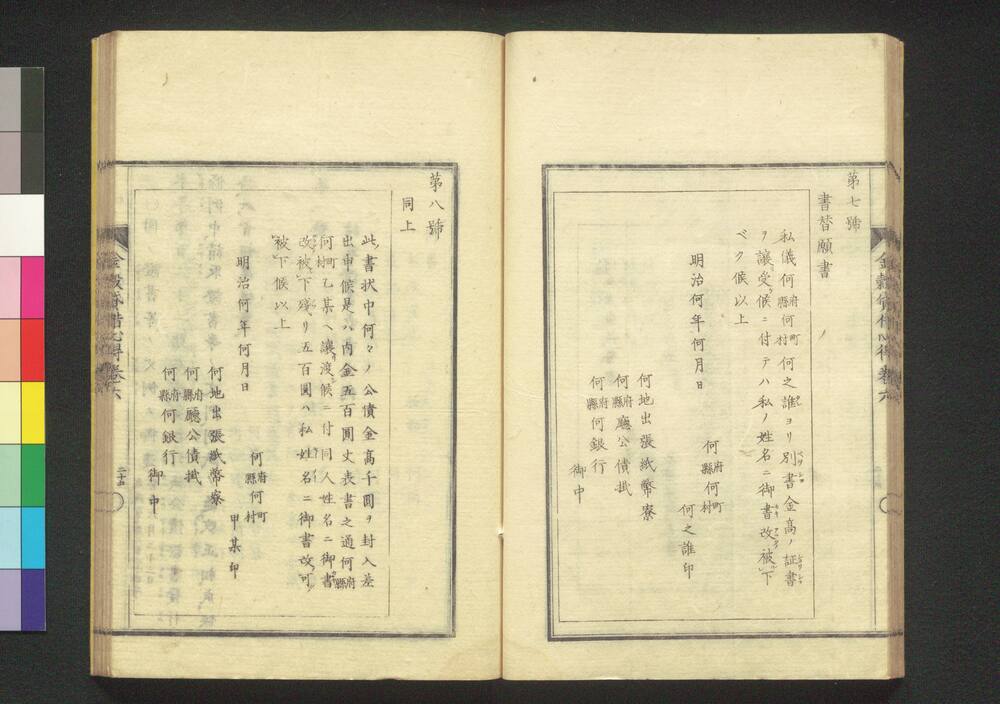 第七號
書替願書
私儀何府縣何町村何之誰ヨリ別書金高ノ証書
ヲ讓受候ニ付テハ私ノ姓名ニ御書改被下
ベク候以上
明治何年何月日
何府縣何町村
何之誰印
何地出張紙幣寮
何府縣廳公債掛
何銀行
御中
金穀貸借心得卷六
第八號
同上
此書状中何々ノ公債金高千圓ヲ封入差
出申候是ハ内金五百圓丈表書之通何府縣
何町村乙某ヘ讓渡候ニ付同人姓名ニ御書
改被下殘リ五百圓ハ私姓名ニ御書改可
被下候以上
明治何年何月日
何府縣何町村
甲某印
何地出張紙幣寮
何府縣廳公債掛
何銀行
御中
金穀貸借心得卷六
二十五